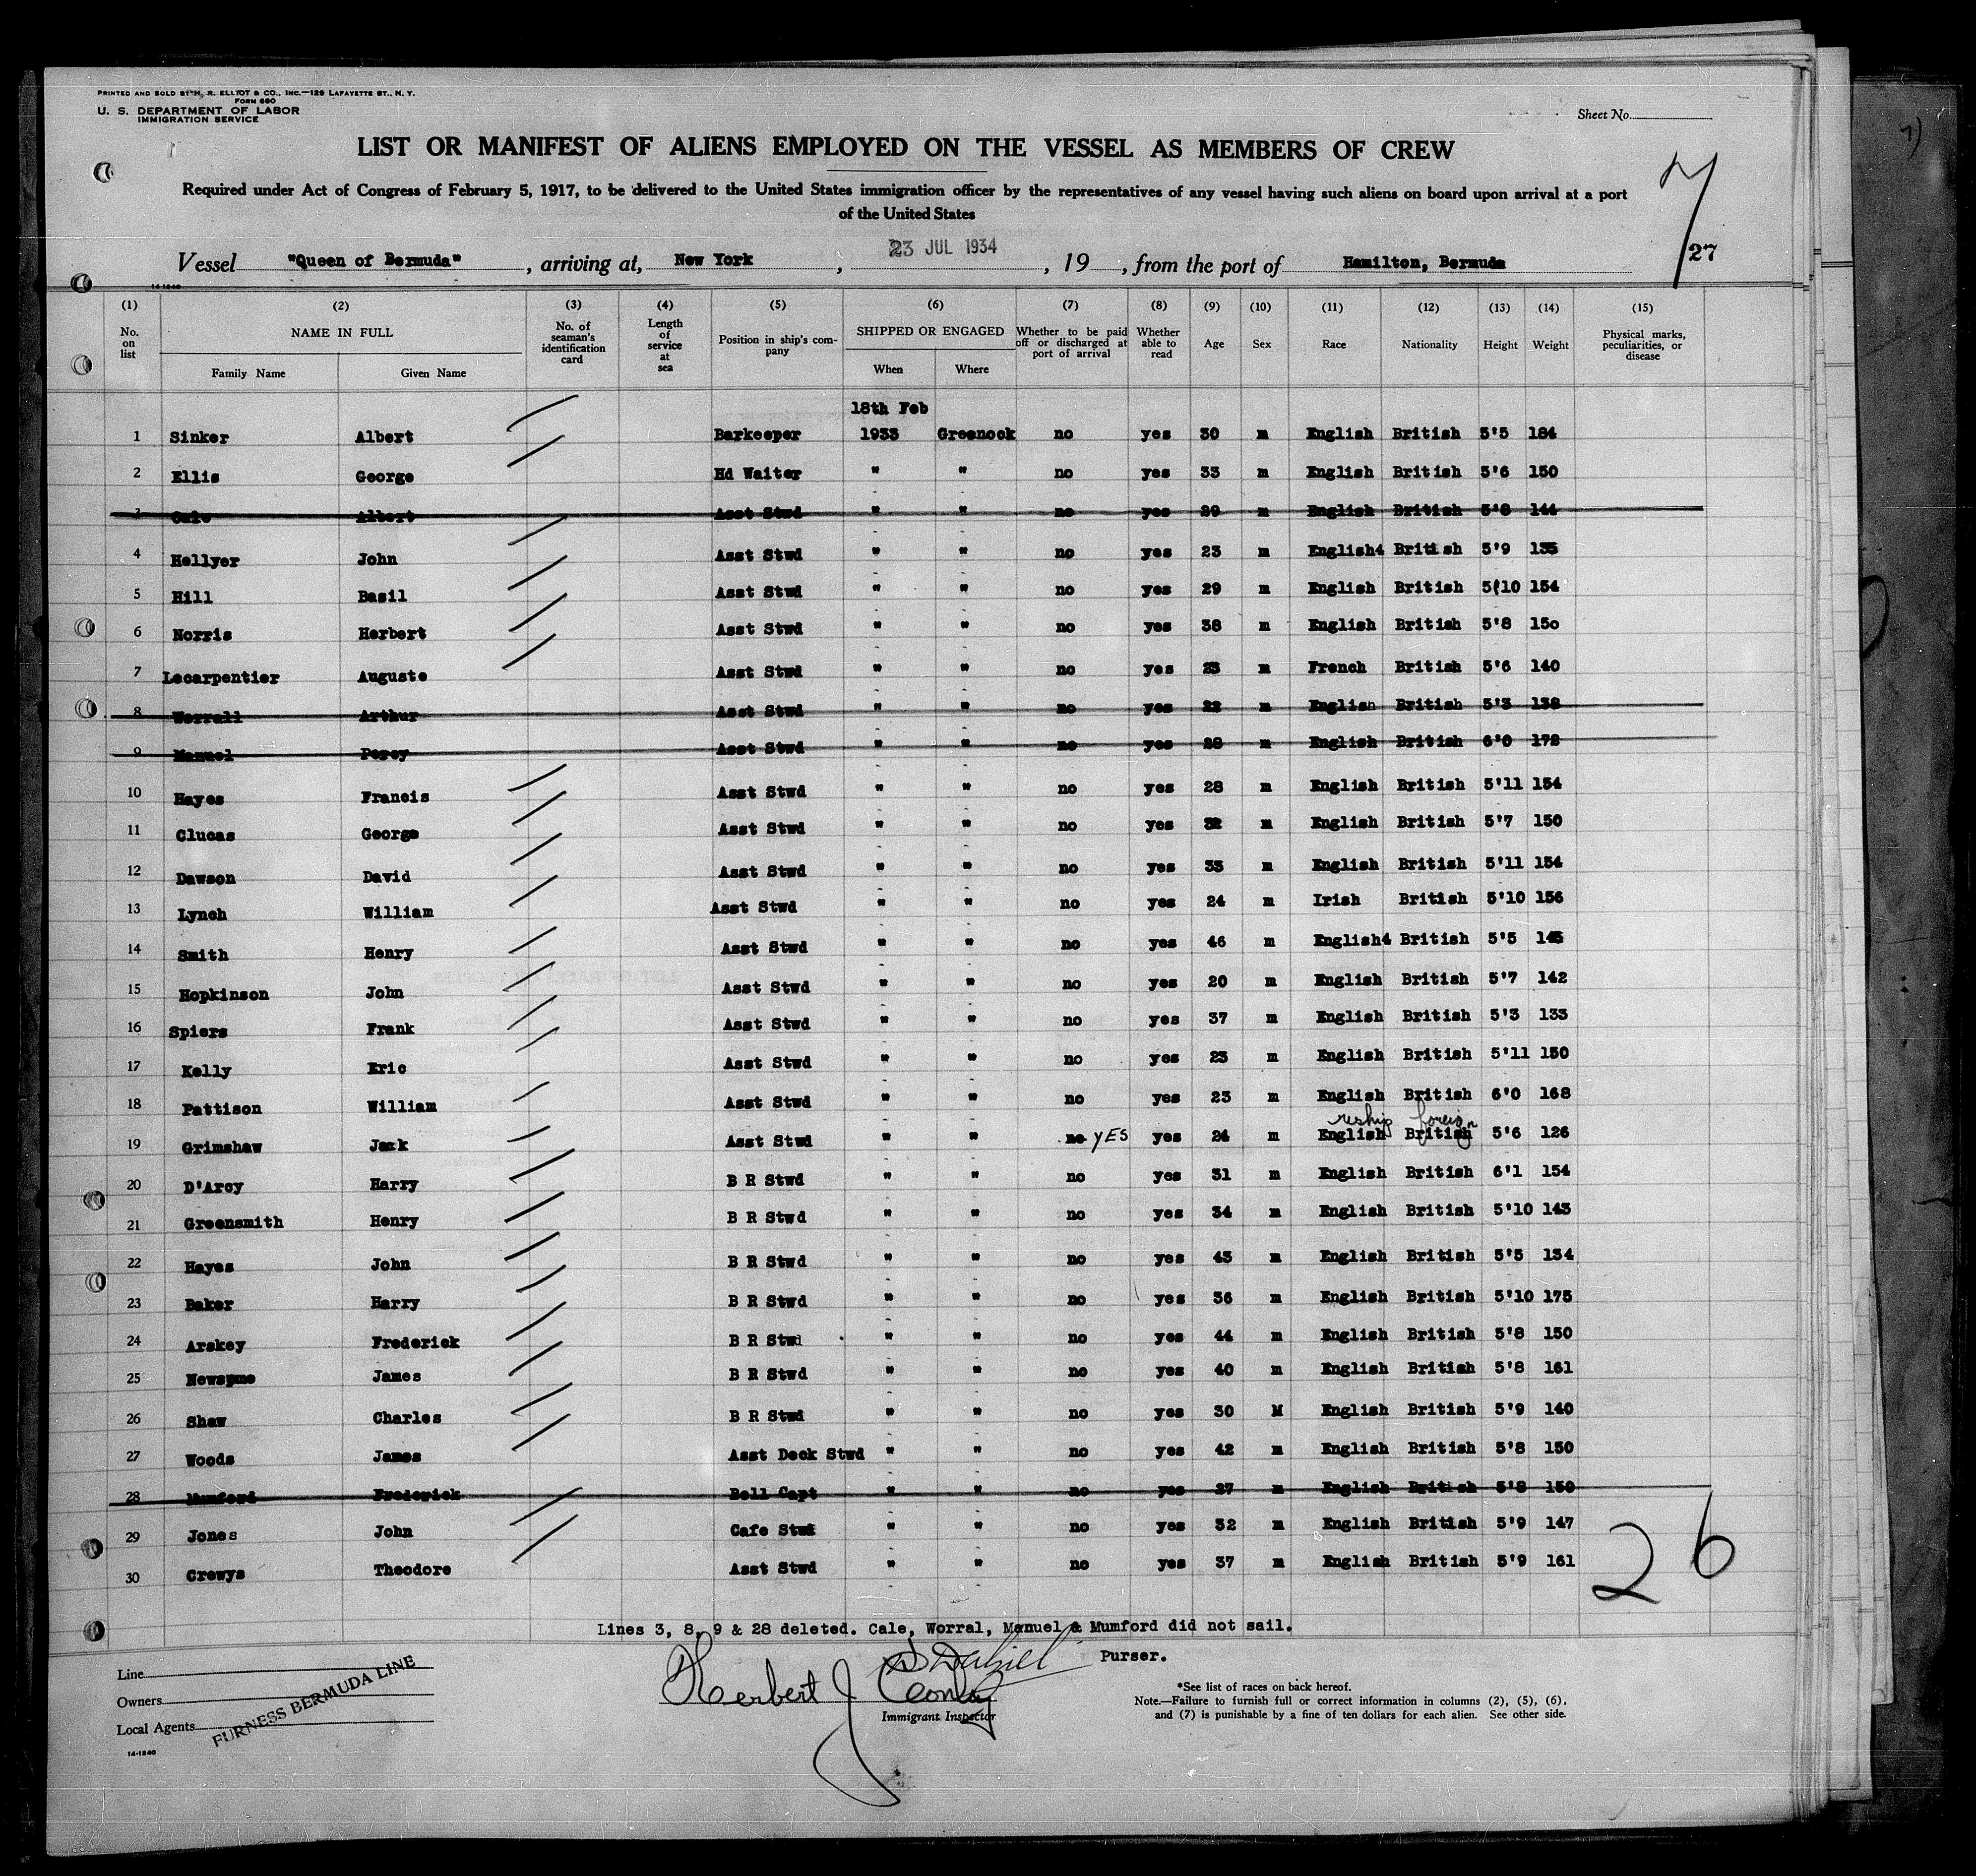 PRINTED AND SOLD BY H. R. ELLIOT & CO., INC.—129 LAFAYETTE ST., N. Y.
FORM 680
U. S. DEPARTMENT OF LABOR
IMMIGRATION SERVICE
Sheet No.
LIST OR MANIFEST OF ALIENS EMPLOYED ON THE VESSEL AS MEMBERS OF CREW
Required under Act of Congress of February 5, 1917, to be delivered to the United States immigration officer by the representatives of any vessel having such aliens on board upon arrival at a port
of the United States
7/27
Vessel "Queen of Bermuda", arriving at, New York, 23 JUL 1934, 19, from the port of Hamilton, Bermuda
14-1240
(1) (2) (3) (4) (5) (6) (7) (8) (9) (10) (11) (12) (13) (14) (15)
No. on list NAME IN FULL Family Name Given Name No. of seaman's identification card Length of service at sea Position in ship's company SHIPPED OR ENGAGED When Where Whether to be paid off or discharged at port of arrival Whether able to read Age Sex Race Nationality Height Weight Physical marks, peculiarities, or disease
18th Feb
1 Sinker Albert Barkeeper 1933 Greenock no yes 30 m English British 5'5 184
2 Ellis George Hd Waiter " " no yes 33 m English British 5'6 150
3 Cale Albert Asst Stwd " " no yes 29 m English British 5'8 144
4 Hellyer John Asst Stwd " " no yes 23 m English4 British 5'9 135
5 Hill Basil Asst Stwd " " no yes 29 m English British 5(10 154
6 Norris Herbert Asst Stwd " " no yes 38 m English British 5'8 15o
7 Lecarpentier Auguste Asst Stwd " " no yes 23 m French British 5'6 140
8 Worrall Arthur Asst Stwd " " no yes 22 m English British 5'3 138
9 Manuel Percy Asst Stwd " " no yes 28 m English British 6'0 172
10 Hayes Francis Asst Stwd " " no yes 28 m English British 5'11 154
11 Clucas George Asst Stwd " " no yes 32 m English British 5'7 150
12 Dawson David Asst Stwd " " no yes 33 m English British 5'11 154
13 Lynch William Asst Stwd " " no yes 24 m Irish British 5'10 156
14 Smith Henry Asst Stwd " " no yes 46 m English4 British 5'5 145
15 Hopkinson John Asst Stwd " " no yes 20 m English British 5'7 142
16 Spiers Frank Asst Stwd " " no yes 37 m English British 5'3 133
17 Kelly Eric Asst Stwd " " no yes 23 m English British 5'11 150
18 Pattison William Asst Stwd " " no yes 23 m English British 6'0 168
reship foreign
19 Grimshaw Jack Asst Stwd " " no YES yes 24 m English British 5'6 126
20 D'Arcy Harry B R Stwd " " no yes 31 m English British 6'1 154
21 Greensmith Henry B R Stwd " " no yes 34 m English British 5'10 143
22 Hayes John B R Stwd " " no yes 43 m English British 5'5 134
23 Baker Harry B R Stwd " " no yes 36 m English British 5'10 175
24 Arskey Frederick B R Stwd " " no yes 44 m English British 5'8 150
25 James B R Stwd " " no yes 40 m English British 5'8 161
26 Shaw Charles B R Stwd " " no yes 30 M English British 5'9 140
27 Woods James Asst Deck Stwd " " no yes 42 m English British 5'8 150
28 Mumford Frederick Bell Capt " " no yes 27 m English British 5'8 150
29 Jones John Cafe Stwd " " no yes 32 m English British 5'9 147
30 Crewys Theodore Asst Stwd " " no yes 37 m English British 5'9 161
26
Lines 3, 8, 9 & 28 deleted. Cale, Worral, Manuel & Mumford did not sail.
Purser.
Line
Owners
Local Agents
FURNESS BERMUDA LINE
14-1240
Herbert J
Immigrant Inspector
*See list of races on back hereof.
Note.—Failure to furnish full or correct information in columns (2), (5), (6),
and (7) is punishable by a fine of ten dollars for each alien. See other side.